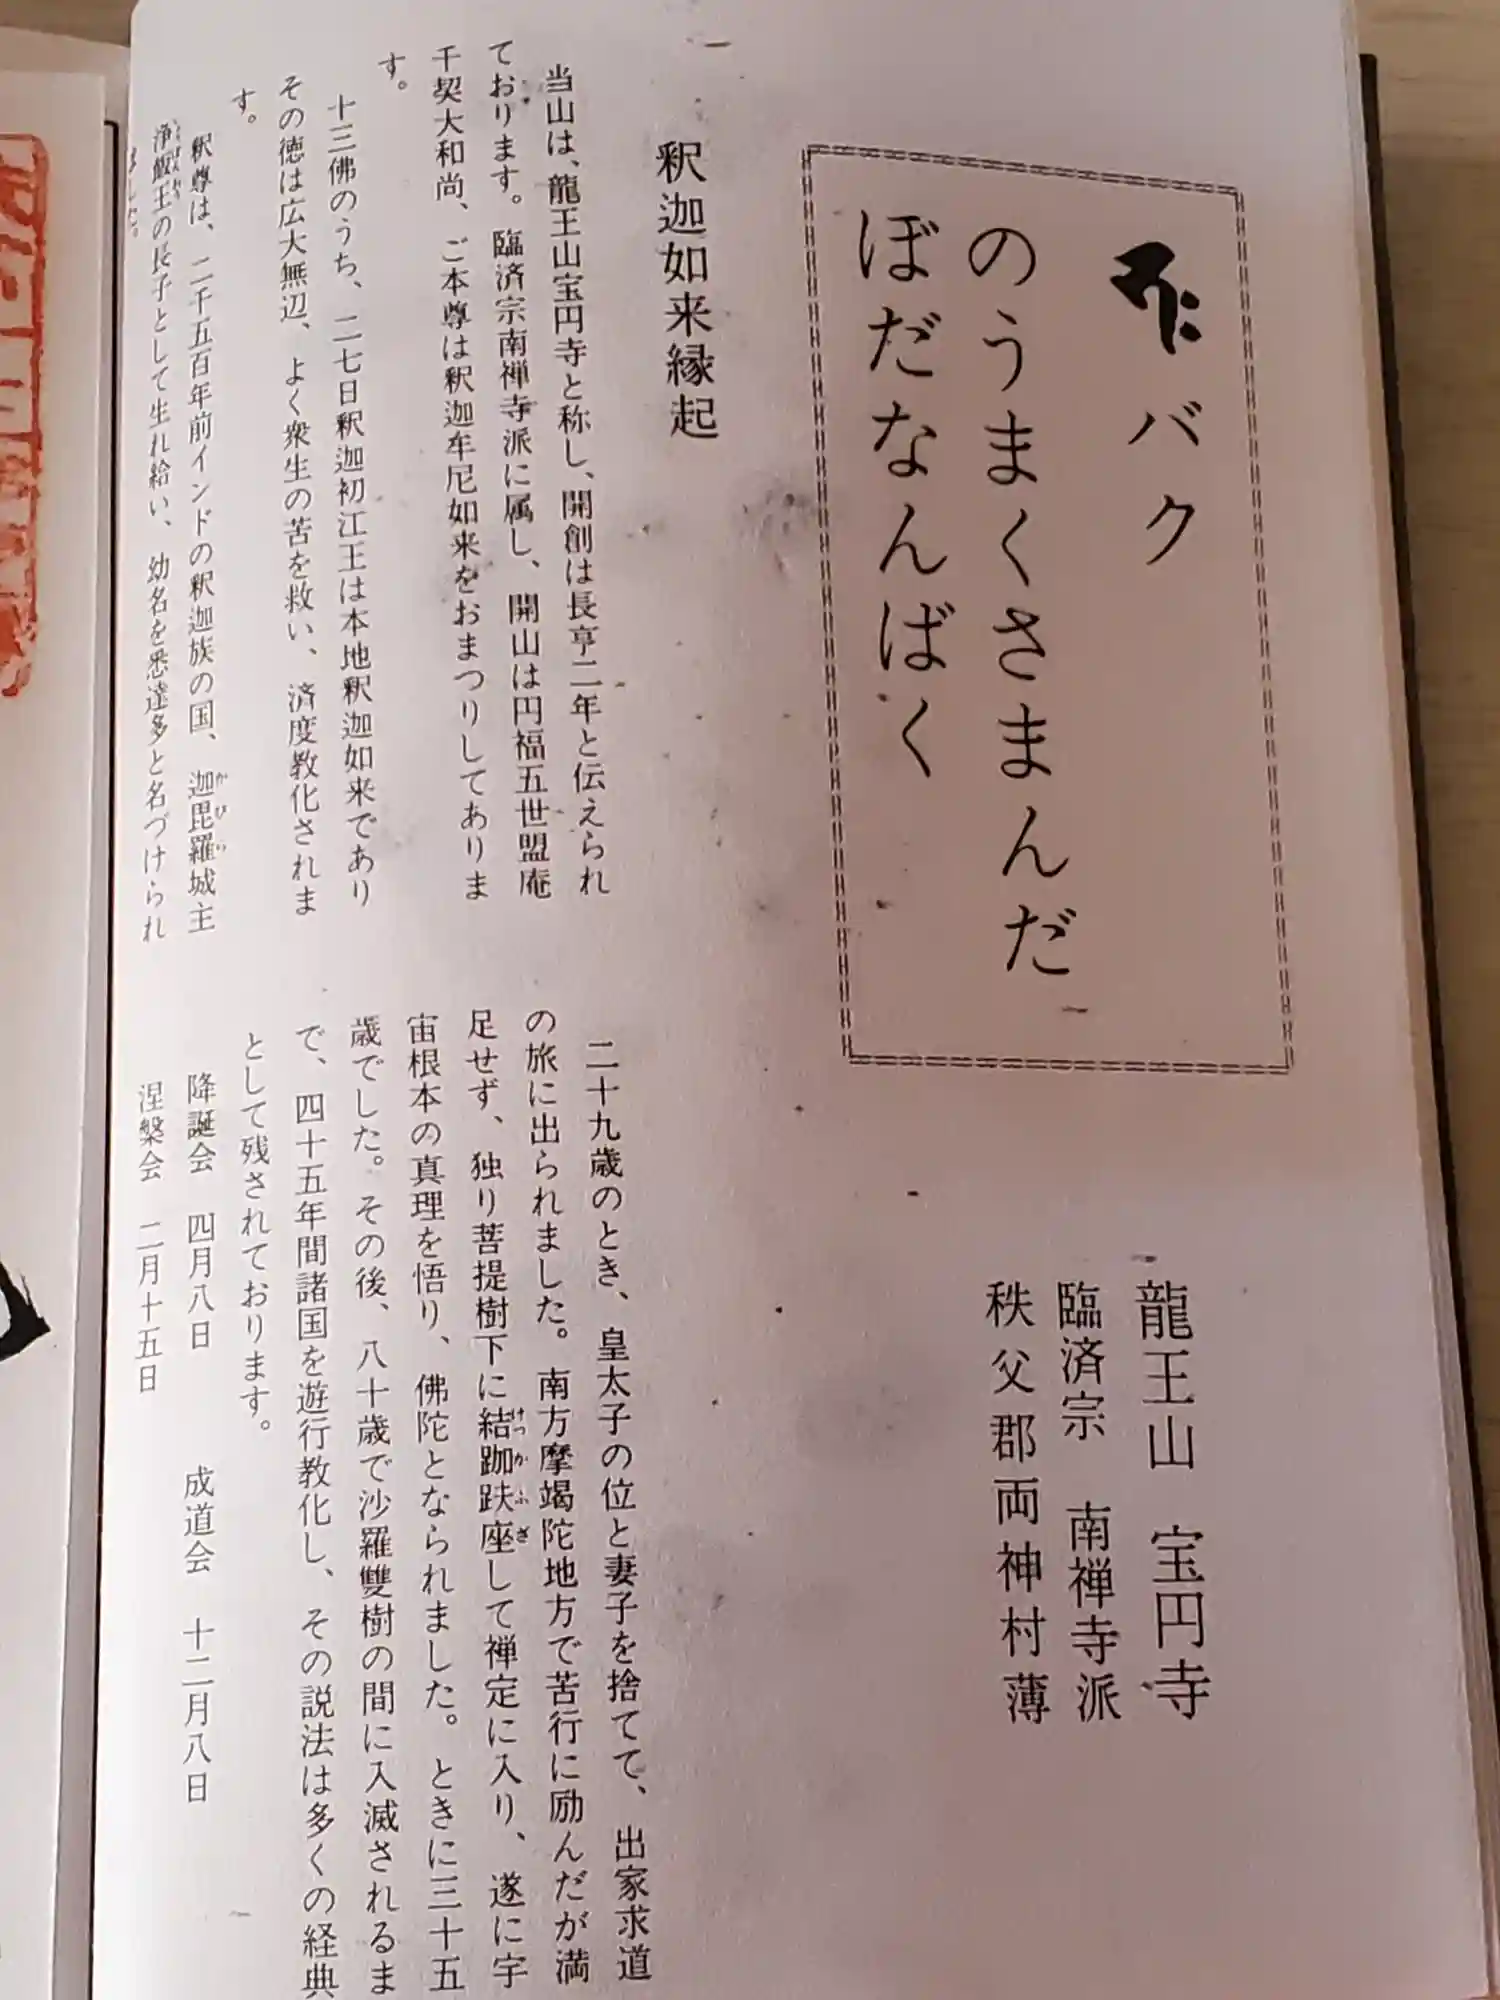 バク
のうまくさまんだ
ぼだなんばく
龍王山 宝円寺
臨済宗 南禅寺派
秩父郡両神村薄
釈迦如来縁起
当山は、龍王山宝円寺と称し、開創は長亨二年と伝えられ
ております。臨済宗南禅寺派に属し、開山は円福五世盟庵
千契大和尚、ご本尊は釈迦牟尼如来をおまつりしてありま
す。
十三佛のうち、二七日釈迦初江王は本地釈迦如来であり
その徳は広大無辺、よく衆生の苦を救い、済度教化されま
す。
釈尊は、二千五百年前インドの釈迦族の国、迦毘羅城主
浄飯王の長子として生れ給い、幼名を悉達多と名づけられ
ました。
二十九歳のとき、皇太子の位と妻子を捨てて、出家求道
の旅に出られました。南方摩竭陀地方で苦行に励んだが満
足せず、独り菩提樹下に結跏趺座して禅定に入り、遂に宇
宙根本の真理を悟り、佛陀となられました。ときに三十五
歳でした。その後、八十歳で沙羅雙樹の間に入滅されるま
で、四十五年間諸国を遊行教化し、その説法は多くの経典
として残されております。
降誕会 四月八日 成道会 十二月八日
涅槃会 二月十五日